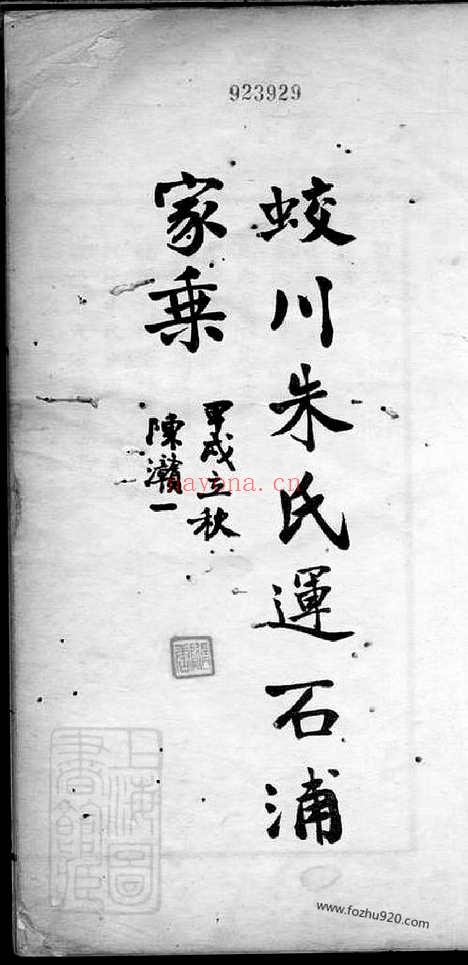 923929
蛟川朱氏運石浦
家乗
甲戌立秋
陳灨一
nayona.cn
上海圖
書館藏
www.fozhu920.com